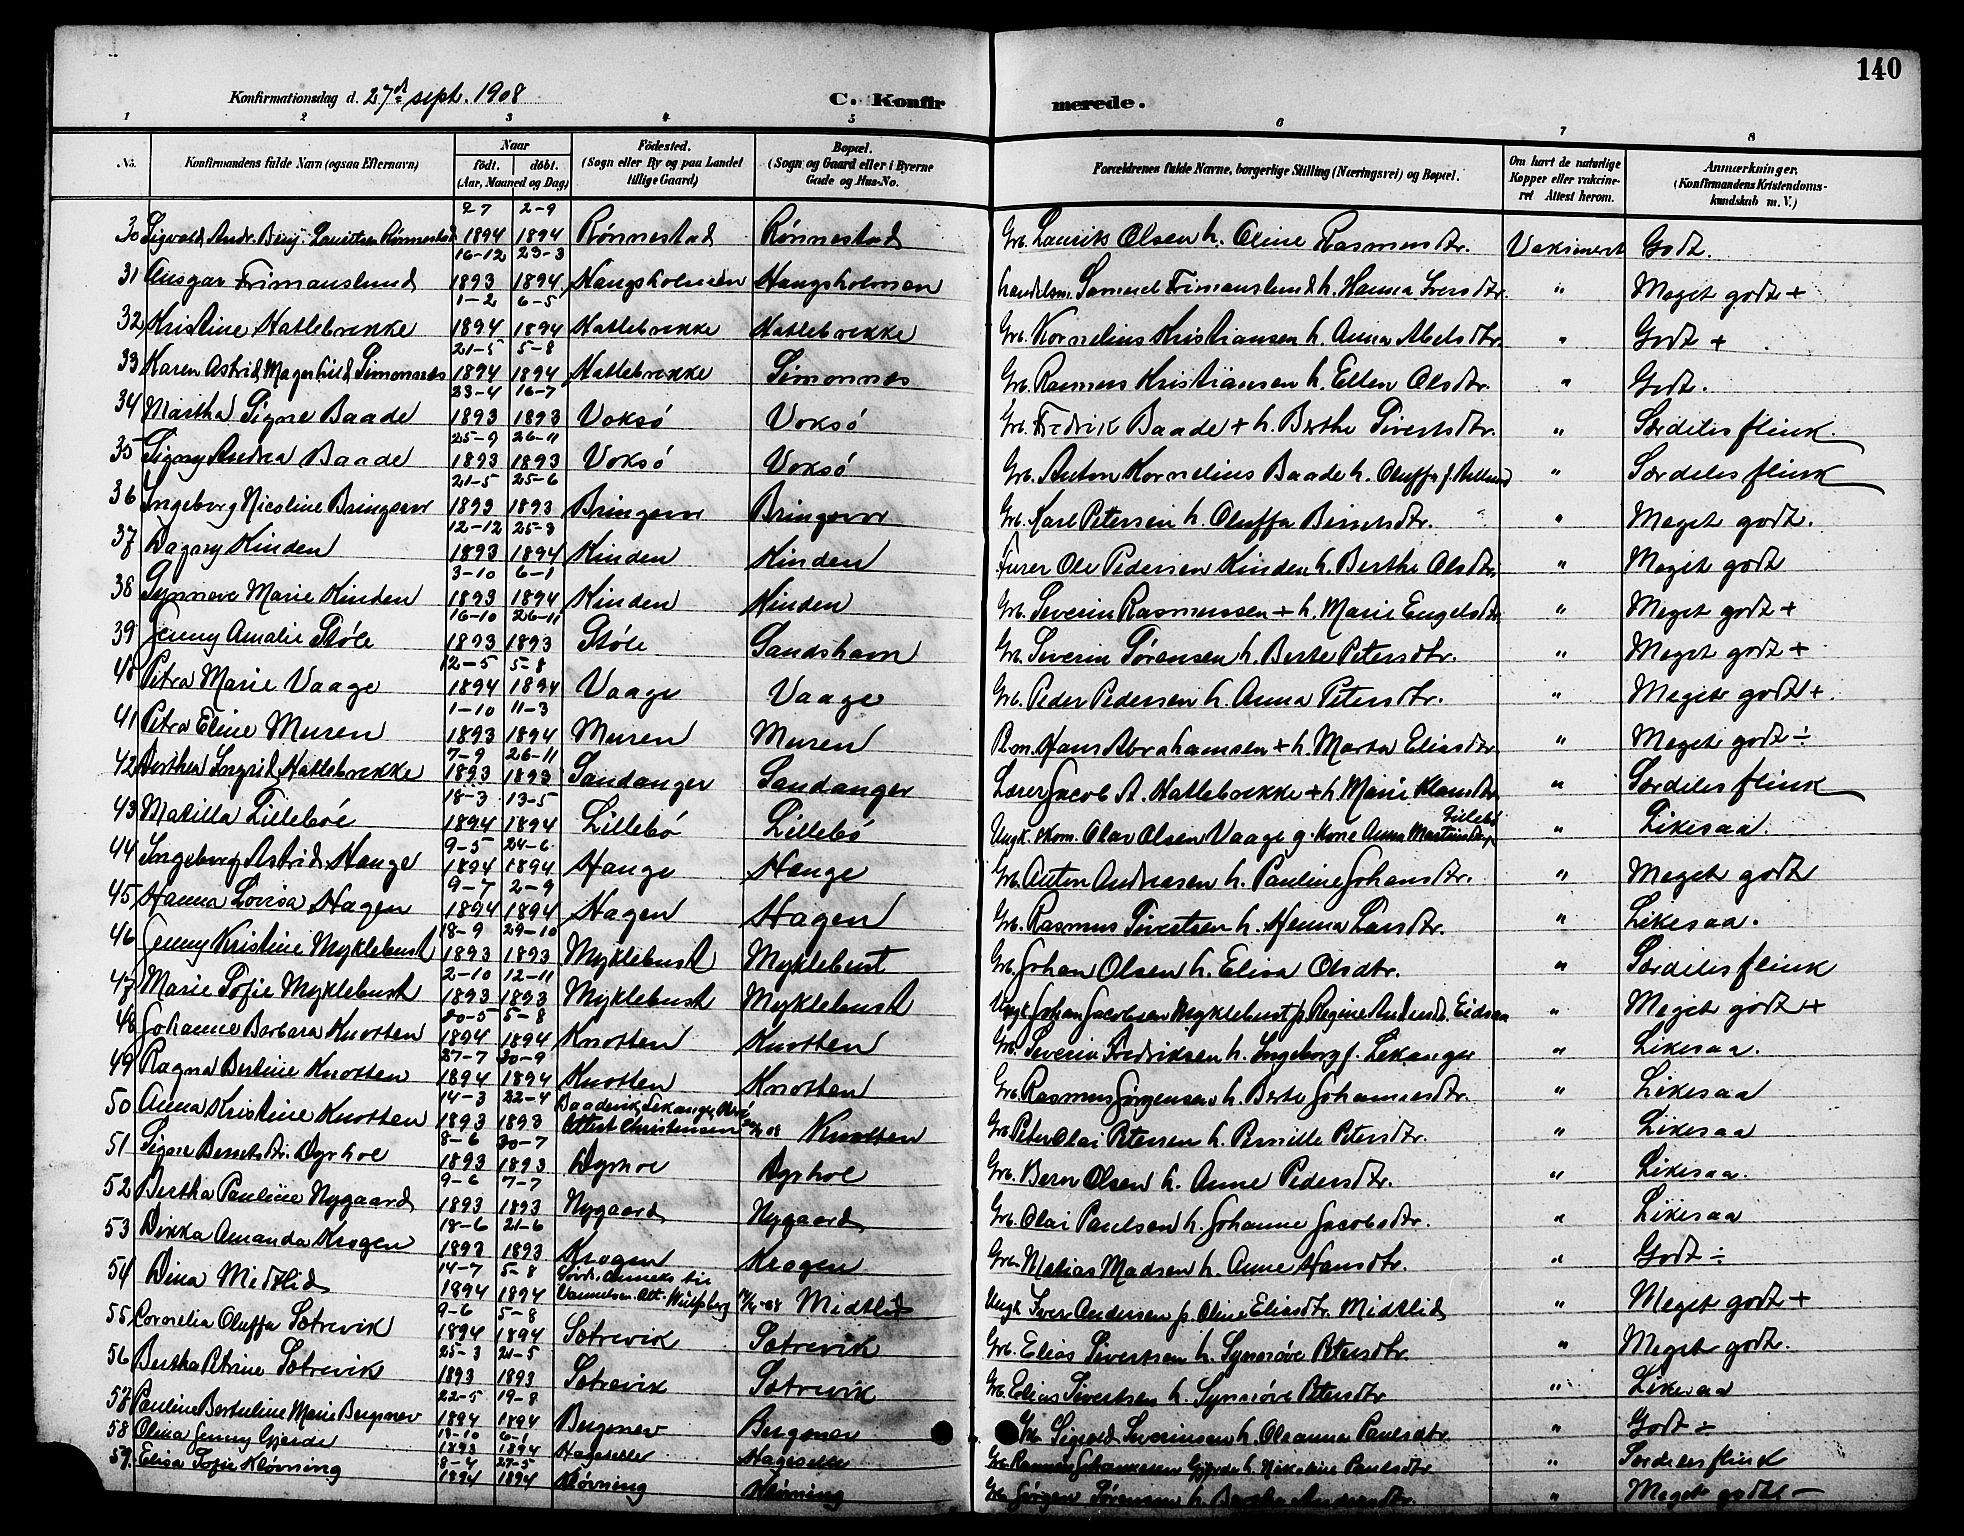 140
Konfirmationsdag d. 27d sept. 1908 C. Konfirmerede.
1 2 3 4 5 6 7 8
No. Konfirmandens fulde Navn (ogsaa Efternavn) Naar födt. döbt. (Aar, Maaned og Dag) Födested. (Sogn eller By og paa Landet tillige Gaard) Bopæl. (Sogn og Gaard eller i Byerne Gade og Hus-No. Forældrenes fulde Navne, borgerlige Stilling (Næringsvei) og Bopæl. Om havt de naturlige Kopper eller vakcineret Attest herom. Anmærkninger. (Konfirmandens Kristendomskundskab m. V.)
30 Sigvald Andr. Benj. Lauritsen Rönnestad 9-7 1894 2-9 1894 Rönnestad Rönnestad Grb. Laurits Olsen h. Oline Rasmusdtr. Vaksineret Godt.
31 Ansgar Frimanslund 16-12 1893 23-3 1894 Haugsholmen Haugsholmen handelsm. Samuel Frimanslund h. Hanna Iversdtr. " Meget godt +
32 Kristine Hatlebrekke 1-2 1894 6-5 1894 Hatlebrekke Hatlebrekke Grb. Kornelius Kristiansen h. Anna Abelsdtr. " Godt +
33 Karen Astrid Magnhild Simonnes 21-5 1894 5-8 1894 Hatlebrekke Simonnes Grb. Rasmus Kristiansen h. Ellen Olsdtr. " Godt.
34 Martha Signe Baade 23-4 1893 16-7 1893 Voksö Voksö Grb. Fredrik Baade + h. Berthe Sivertsdtr. " Særdeles flink.
35 Signy Andrea Baade 25-9 1893 26-11 1893 Voksö Voksö Grb. Anton Kornelius Baade h. Oluffa f. " Særdeles flink
36 Ingeborg Nicoline Bringsvor 21-5 1893 25-6 1893 Bringsvor Bringsvor Grb. Karl Petersen h. Oluffa Berntsdtr. " Meget godt.
37 Dagny Kinden 12-12 1893 25-3 1894 Kinden Kinden Furer Ole Pedersen Kinden h. Berthe Olsdtr. " Meget godt
38 Synneve Marie Kinden 3-10 1893 6-1 1894 Kinden Kinden Grb. Severin Rasmussen + h. Marie Engelsdtr. " Meget godt +
39 Jenny Amalie Stöle 16-10 1893 26-11 1893 Stöle Sandshavn Grb. Severin Sörensen h. Berte Petersdtr. " Meget godt +
40 Petra Marie Vaage 12-5 1894 5-8 1894 Vaage Vaage Grb. Peder Pedersen h. Anna Petersdtr. " Meget godt +
41 Petra Eline Muren 1-10 1893 11-3 1894 Muren Muren Rm. Hans Abrahamsen + h. Marta Eliasdtr. " Meget godt ÷
42 Berthea Ingrid Hatlebrekke 7-9 1893 26-11 1893 Sandanger Sandanger Lærer Jacob A. Hatlebrekke + h. Marie Klausdtr. " Særdeles flink
43 Matilla Lilleböe 18-3 1894 13-5 1894 Lillebö Lillebö Ungk. Skom. Olav Olsen Vaage g. Kone Anna Martinsdtr. Lillebö " Likesaa.
44 Ingeborg Astrid Hauge 9-5 1894 24-6 1894 Hauge Hauge Grb. Anton Andreasen h. Pauline Johansdtr. " Meget godt
45 Hanna Lovisa Hagen 9-7 1894 2-9 1894 Hagen Hagen Grb. Rasmus Sivertsen h. Hanna Larsdtr. " Likesaa.
46 Jenny Kristine Myklebust 18-9 1893 29-10 1893 Myklebust Myklebust Grb. Johan Olsen h. Elisa Olsdtr. " Særdeles flink
47 Marie Sofie Myklebust 2-10 1893 12-11 1893 Myklebust Myklebust Ungk. Johan Jacobsen Myklebust p. Regine Eidsaa " Meget godt +
48 Johanne Barbara Knotten 20-5 1894 5-8 1894 Knotten Knotten Grb. Severin Fredriksen h. Ingeborg f. Lekanger " Likesaa.
49 Ragna Bertine Knotten 27-7 1894 30-9 1894 Knotten Knotten Grb. Rasmus Jörgensen h. Berte Johannesdtr. " Likesaa
50 Anna Kristine Knotten 14-3 1893 22-4 1893 Attest Christensen Knotten Grb. Peter Olai Petersen h. Pernille Petersdtr. " Likesaa
51 Signe Berntsdtr. Dyrhol 8-6 1893 30-7 1893 Dyrhol Dyrhol Grb. Bern Olsen h. Anne Pedersdtr. " Likesaa.
52 Bertha Pauline Nygaard 9-6 1893 7-7 1893 Nygaard Nygaard Grb. Olai Paulsen h. Johanne Jacobsdtr. " Likesaa
53 Dikka Amanda Krogen 18-6 1893 21-6 1893 Krogen Krogen Grb. Melias Madsen h. Anne Hansdtr. " Godt ÷
54 Dina Midtlid 14-7 1894 5-8 1894 Midtlid Ungk. Iver Andersen p. Oline Eliasdtr. Midtlid " Meget godt +
55 Cornelia Oluffa Sætrevik 9-6 1894 5-8 1894 Sætrevik Sætrevik Grb. Elias Sivertsen h. Synnöve Petersdtr. " Meget godt.
56 Bertha Petrine Sætrevik 25-3 1893 21-5 1893 Sætrevik Sætrevik Grb. Elias Sivertsen h. Synnöve Petersdtr " Likesaa
57 Pauline Bertuline Marie Bergsnev 22-5 1894 19-8 1894 Bergsnev Bergsnev Grb. Sigvald Severinsen h. Oleanna Paulsdtr. " Godt ÷
58 Olina Jenny Gjerde 18-10 1893 6-1 1894 Hageselle Hageselle Grb. Rasmus Johannesen Gjerde h. Nikoline Paulsdtr. " Særdeles flink
59. Elisa Sofie Klövning 8-4 1894 27-5 1894 Klövning Klövning Grb. Jörgen Sörensen h. Bertha Andreasdtr. " Meget godt –